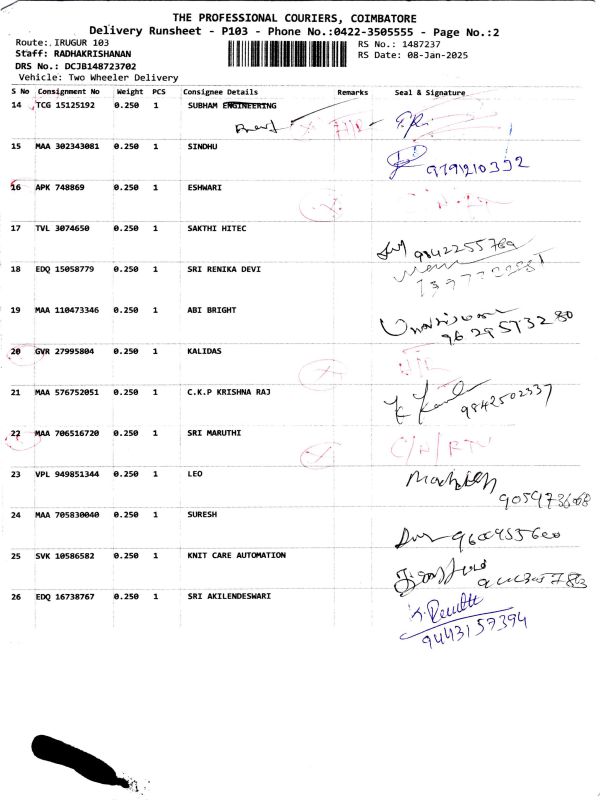 THE PROFESSIONAL COURIERS, COIMBATORE
Delivery Runsheet - P103 - Phone No.:0422-3505555 - Page No.:2
Route: IRUGUR 103
RS No.: 1487237
Staff: RADHAKRISHANAN
RS Date: 08-Jan-2025
DRS No.: DCJB148723702
Vehicle: Two Wheeler Delivery
S No Consignment No Weight PCS Consignee Details Remarks Seal & Signature
14 TCG 15125192 0.250 1 SUBHAM ENGINEERING
15 MAA 302343081 0.250 1 SINDHU
16 APK 748869 0.250 1 ESHWARI
17 TVL 3074650 0.250 1 SAKTHI HITEC
9842255769
18 EDQ 15058779 0.250 1 SRI RENIKA DEVI
19 MAA 110473346 0.250 1 ABI BRIGHT
20 GVR 27995804 0.250 1 KALIDAS
21 MAA 576752051 0.250 1 C.K.P KRISHNA RAJ
9842502337
22 MAA 706516720 0.250 1 SRI MARUTHI
C/N/RTN
23 VPL 949851344 0.250 1 LEO
24 MAA 705830040 0.250 1 SURESH
25 SVK 10586582 0.250 1 KNIT CARE AUTOMATION
26 EDQ 16738767 0.250 1 SRI AKILENDESWARI
9443157394